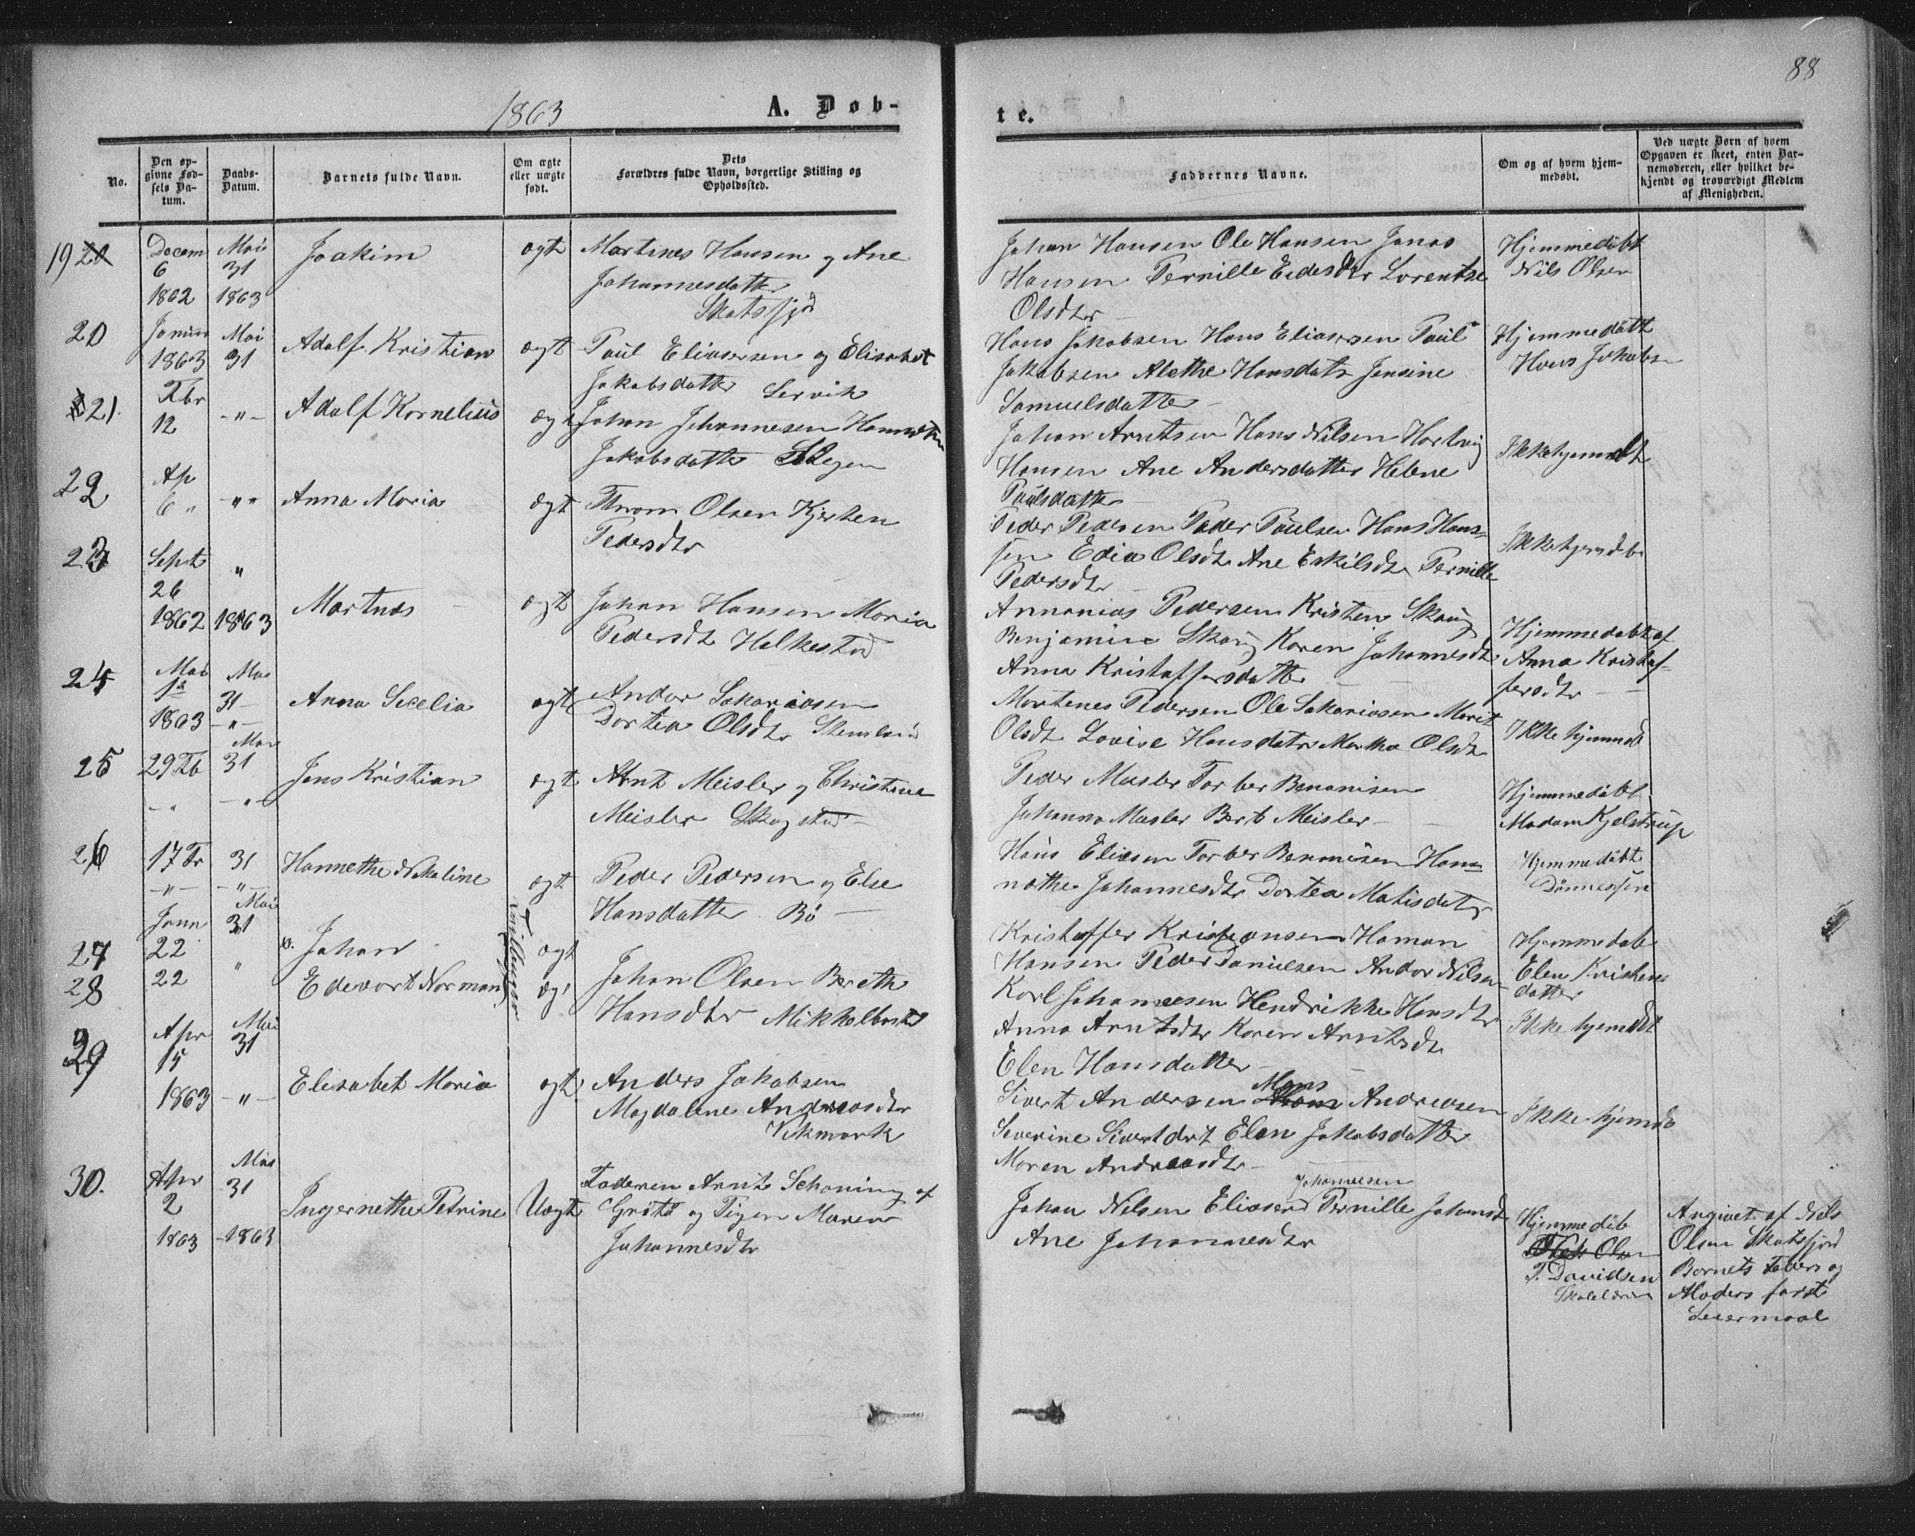 88
1863
A. Døb-
te.
No.
Den op-
givne Fød-
sels Da-
tum.
Daabs-
Datum.
Barnets fulde Navn.
Om ægte
eller uægte
født.
Dets
Forældres fulde Navn, borgerlige Stilling og
Opholdssted.
Faddernes Navne.
Om og af hvem hjem-
medøbt.
Ved uægte Børn af hvem
Opgaven er skeet, enten Bar-
nemoderen, eller hvilket be-
kjendt og troværdigt Medlem
af Menigheden.
19
Decem
6
1862
Mai
31
1863
Joakim
ægte
Martines Hansen og Ane
Johannesdatter
Skotsfjd
Johan Hansen Ole Hansen Jonas
Hansen Pernille Eidesdtr Lorentse
Olsdtr
Hjemmedøbt
Nils Olsen
20
Januar
1863
Mai
31
Adolf Kristian
ægte
Paul Eliasersen og Elisabet
Jakobsdatter Lervik
Hans Jakobsen Hans Eliasersen Paul
Jakobsen Alethe Hansdatr Jensine
Samuelsdatter
Hjemmedøbt
Hans Jakobs
21.
Fbr
12
-"-
Adolf Kornelius
ægt
Johan Johannesen
Jakobsdatter
Johan Arntsen Hans Nilsen Hartvig
Hansen Ane Andersdatter Helene
Paulsdatter
Ikke hjemmdt
22
Ap
6 "
""
Anna Maria
ægt
Olsen Kjersten
Pedersdtr
Peder Pedersen Peder Paulsen Hans Hans-
sen Edia Olsdt Ane Eskilsdt Pernille
Pedersdtr
Ikke hjemdb
23
Sept
26
1862
"
1863
Martnes
ægt
Johan Hansen Maria
Pedersdt Halkestad
Annanias Pedersen Kristen Skaug
Benjamin Skaug Karen Johannesdt
Anna Kristoffersdatter
Hjemmedøbt af
Anna Kristof-
fersdtr
24
Mai
1863
Mai
31
-"-
Anna Secelia
ægt
Andor Sakariasen
Dortea Olsdtr
Martenes Pedersen Ole Sakariasen Marit
Olsdt Lovise Hansdatr Martha Olsdt
Ikke hjemmd
25
29 Fb
-"
Mai
31
-"
Jens Kristian
ægt
Arnt Meisler og Christine
Meisler Skagstad
Peder Masler Torber Benonisen
Johanna Masler Berb Meisler
Hjemmedøbt
Madam Kjelstrup
26
17 Fr
-"-
31
-"-
Hannethe Nikoline
ægt
Peder Pedersen og Else
Hansdatter Bø
Hans Eliesen Torber Benonisen Han-
nethe Johannesdtr Dortea Matisdatr
Hjemmedøbt
27
Jann
22
Mai
31
Johan
Tvillinger
ægt
28
22
"
Edevart Norman
ægt
Johan Olsen Bereth
Hansdtr Mikkelbost
Kristoffer Kristiansen Haman
Hansen Peder Danielsen Andor Nilsen
Karl Johannesen Hendrikke Hansdtr
Anna Arntsdtr Karen Arntsdt
Elen Hansdatter
Hjemmedøb
Elen Kristens
datter
Ikke hjemdbt
29
Apr
15
1863
Mai
31
-"-
Elisabet Maria
ægt
Anders Jakobsen
Magdalene Andreasdtr
Vikmark
Sivert Andersen Mons Andreasen
Severine Sivertdrt Elen Jakobsdatter
Maren Andreasdtr
Ikke hjemdb
30.
Apr
2
1863
Mai
31
-1863
Ingernethe Petrine
Uægt
Faderen Arnt Schøning af
Grøtø og Pigen Maren
Johannesdtr
Johan Nilsen Eliaser Johannesen Pernille Johansdt
Ane Johannesdtr
Hjemmedøb
T. Davidsen
Skolelærer
Angivet af Nils
Olsen Skotsfjord
Barnets Faders og
Moders første
Leiermaal